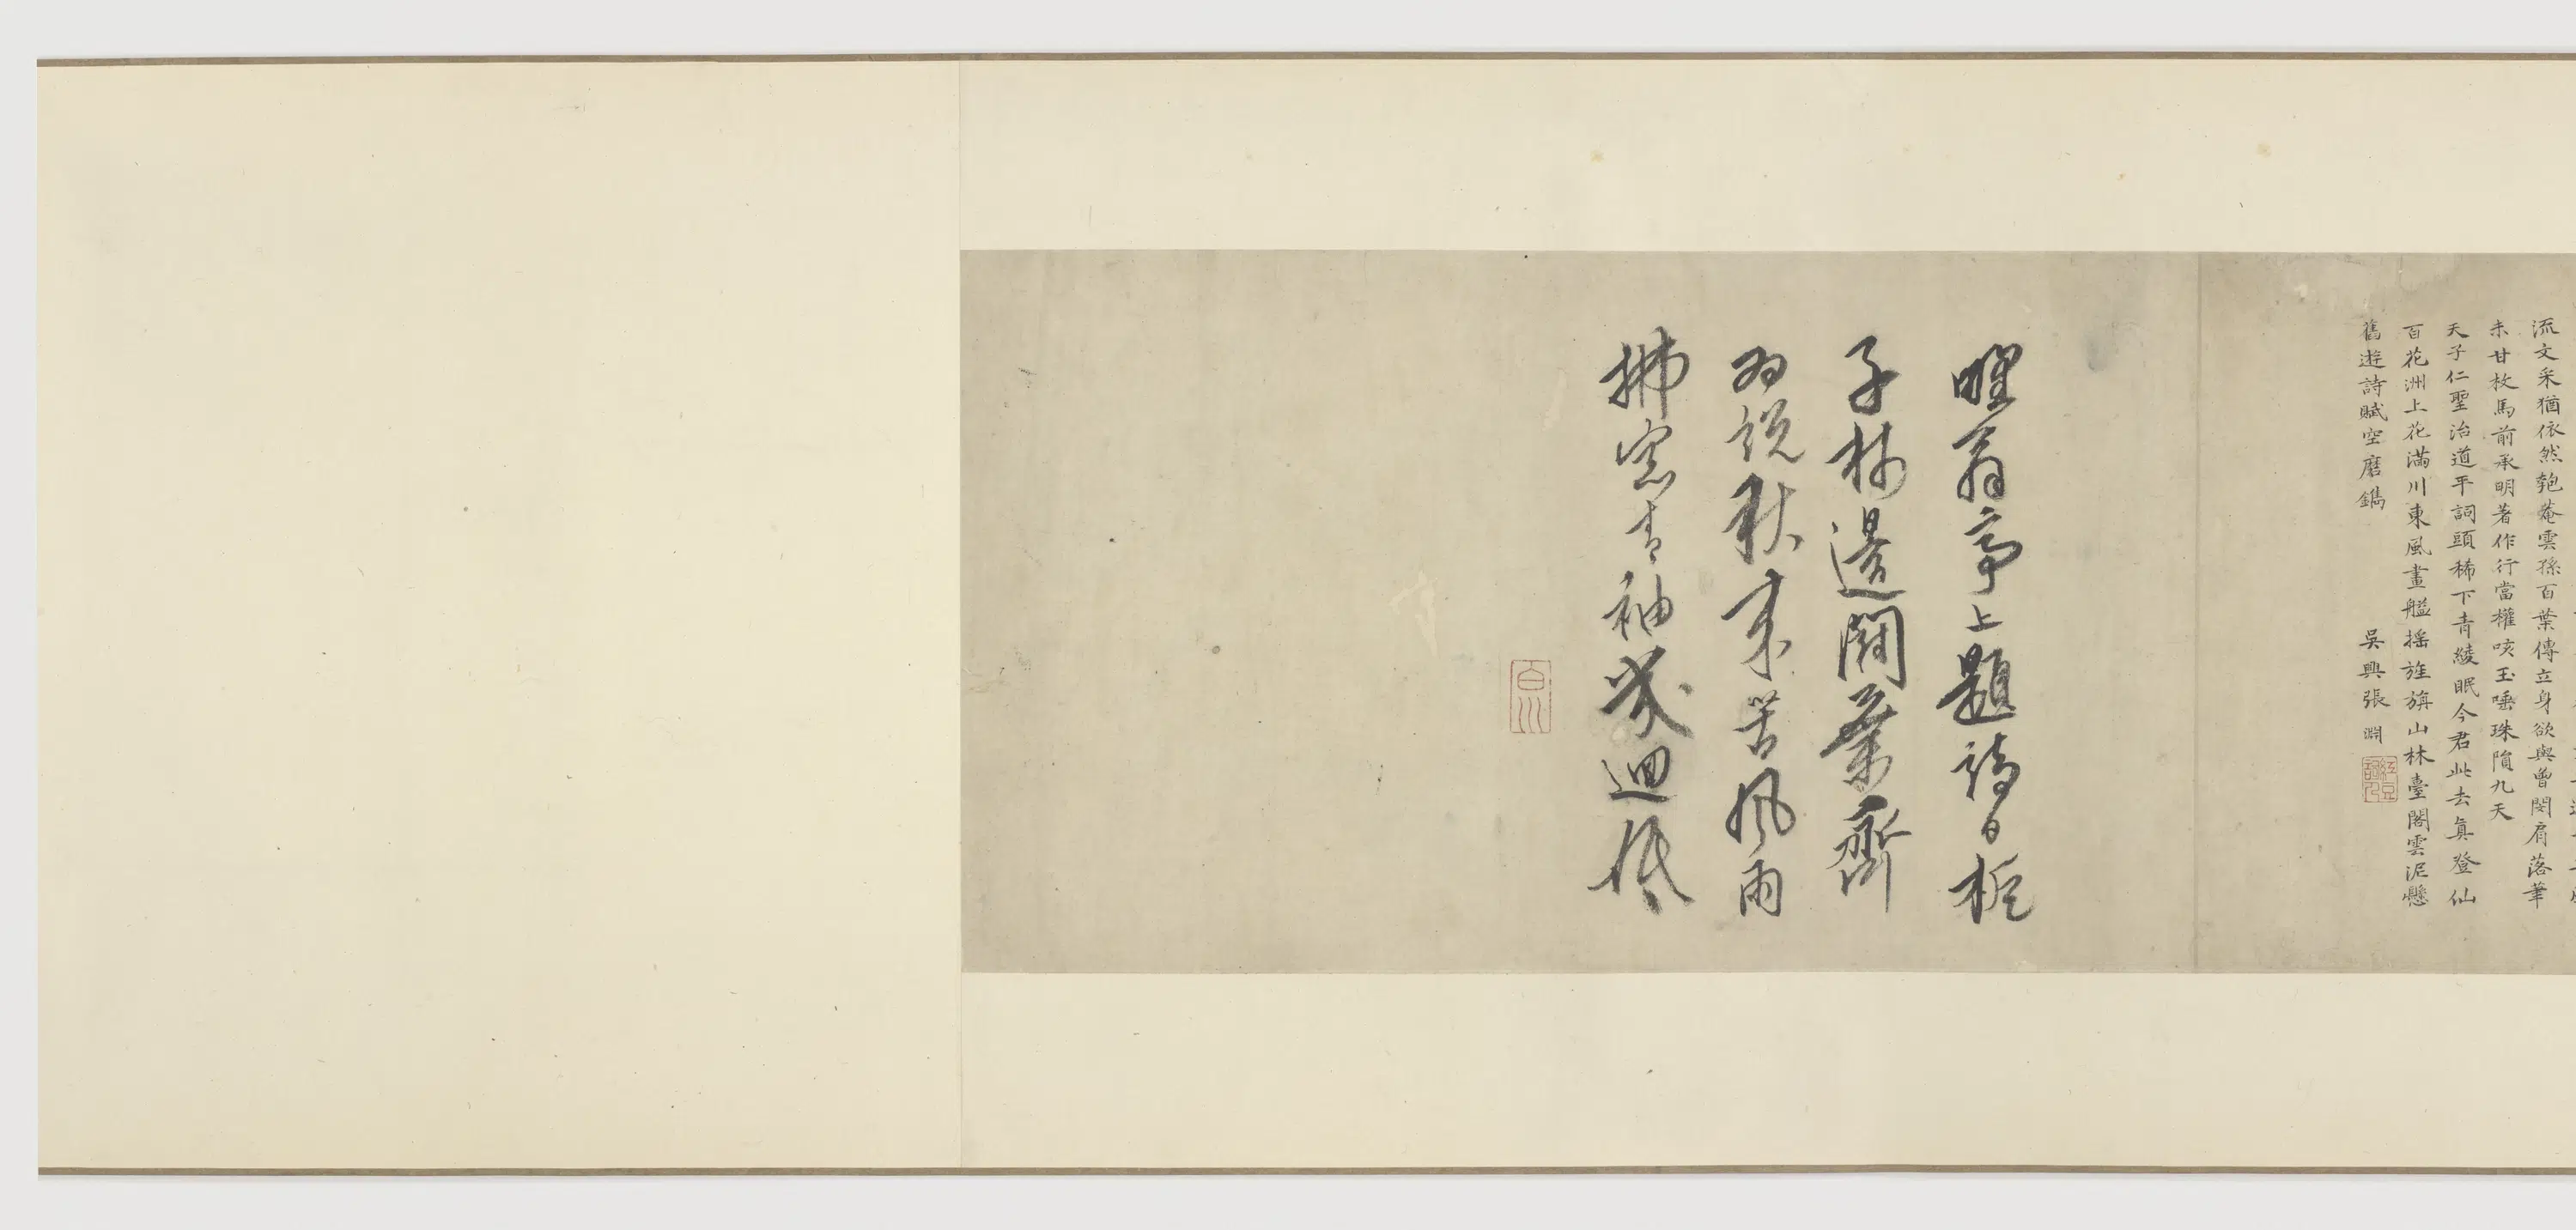 流文采猶依然匏菴雲孫百葉傳立身欲與曾閔肩落筆
未甘枚馬前承明著作行當權咳玉唾珠隕九天
天子仁聖治道平詞頭稀下青綾眠今君此去真登仙
百花洲上花滿川東風畫艦搖旌旗山林臺閣雲泥懸
舊遊詩賦空磨鐫 吳興張淵
翁亭上題詩日梔
子邊鬭葉齊
為說秋來苦風雨
拂窓青袖幾迴低
百川